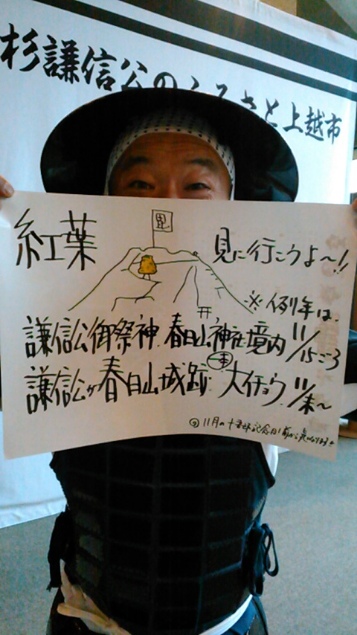 杉謙信公のふるさと上越市
毘
紅葉 見に行こうよ〜!!
※例年は、
謙信公御祭神 春日山神社境内 11/15ころ
謙信公が春日山城跡 大イチョウ 11/末〜
11月の